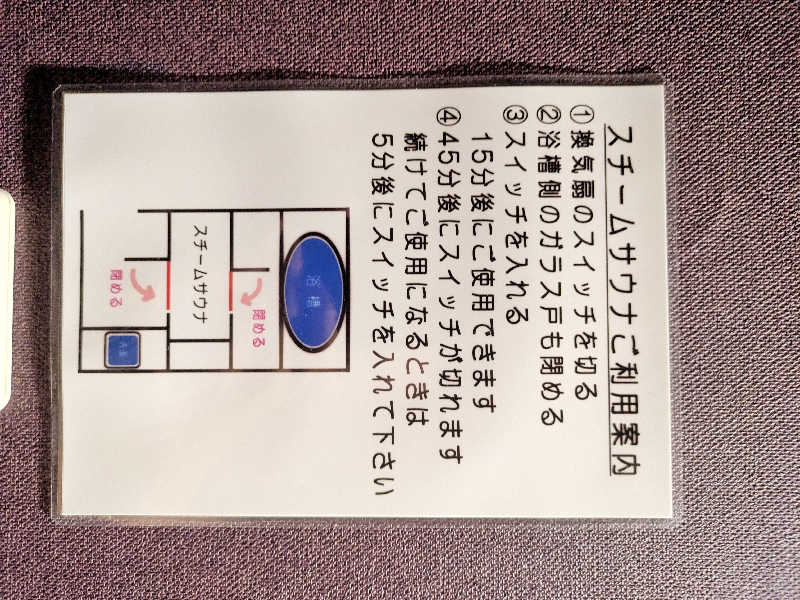 スチームサウナご利用案内
①換気扇のスイッチを切る
②浴槽側のガラス戸も閉める
③スイッチを入れる
15分後にご使用できます
④45分後にスイッチが切れます
続けてご使用になるときは
5分後にスイッチを入れて下さい
浴槽
閉める
スチームサウナ
閉める